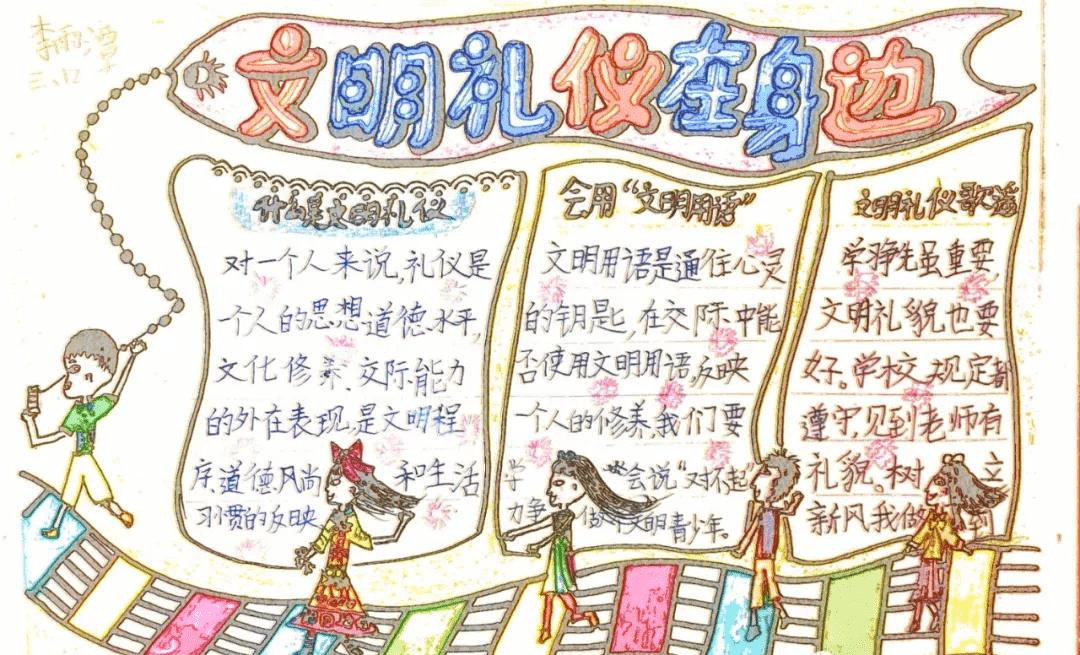 李雨潭
三、口
文明礼仪在身边
什么是文明礼仪
对一个人来说,礼仪是
一个人的思想道德水平,
文化修养、交际能力
的外在表现,是文明程
序、道德风尚和生活
习惯的反映
会用“文明用语”
文明用语是通往心灵
的钥匙,在交际中能
否使用文明用语,反映
一个人的修养,我们要
学会说“对不起”
力争做个文明青少年。
文明礼仪歌谣
学习争先虽重要,
文明礼貌也要
好。学校规定都
遵守,见到老师有
礼貌。树立
新风我做到